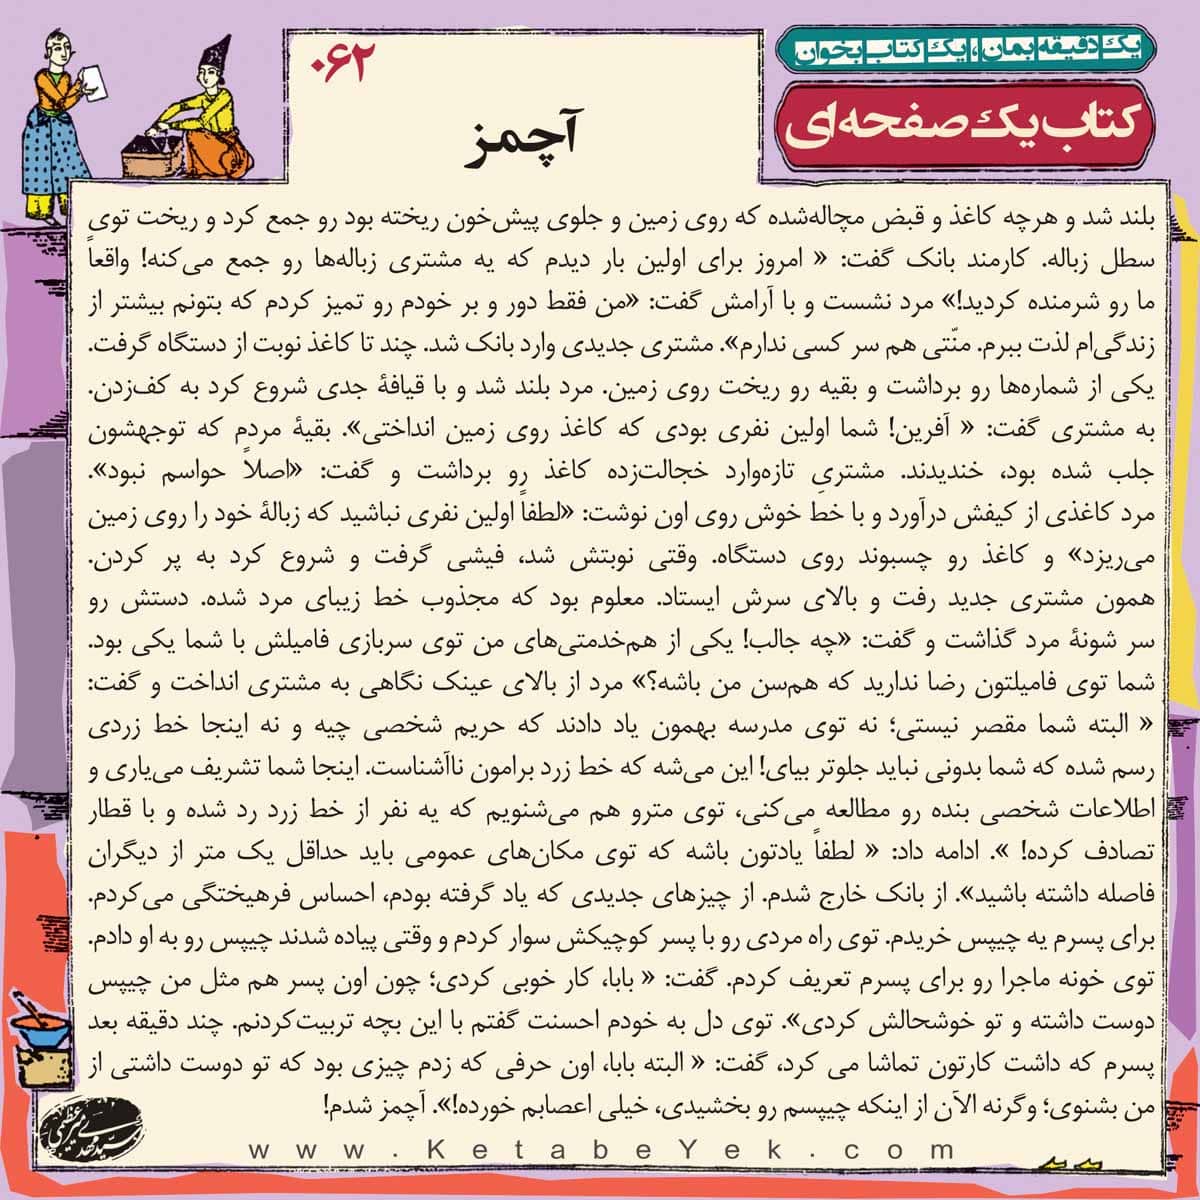 یک دقیقه بمان، یک کتاب بخوان
کتاب یک صفحه‌ای
۰۶۲
آچمز
بلند شد و هرچه کاغذ و قبض مچاله‌شده که روی زمین و جلوی پیش‌خون ریخته بود رو جمع کرد و ریخت توی
سطل زباله. کارمند بانک گفت: « امروز برای اولین بار دیدم که یه مشتری زباله‌ها رو جمع می‌کنه! واقعاً
ما رو شرمنده کردید!» مرد نشست و با آرامش گفت: «من فقط دور و بر خودم رو تمیز کردم که بتونم بیشتر از
زندگی‌ام لذت ببرم. منّتی هم سر کسی ندارم». مشتری جدیدی وارد بانک شد. چند تا کاغذ نوبت از دستگاه گرفت.
یکی از شماره‌ها رو برداشت و بقیه رو ریخت روی زمین. مرد بلند شد و با قیافهٔ جدی شروع کرد به کف‌زدن.
به مشتری گفت: « آفرین! شما اولین نفری بودی که کاغذ روی زمین انداختی». بقیهٔ مردم که توجهشون
جلب شده بود، خندیدند. مشتریِ تازه‌وارد خجالت‌زده کاغذ رو برداشت و گفت: «اصلاً حواسم نبود».
مرد کاغذی از کیفش درآورد و با خط خوش روی اون نوشت: «لطفاً اولین نفری نباشید که زبالهٔ خود را روی زمین
می‌ریزد» و کاغذ رو چسبوند روی دستگاه. وقتی نوبتش شد، فیشی گرفت و شروع کرد به پر کردن.
همون مشتری جدید رفت و بالای سرش ایستاد. معلوم بود که مجذوب خط زیبای مرد شده. دستش رو
سر شونهٔ مرد گذاشت و گفت: «چه جالب! یکی از هم‌خدمتی‌های من توی سربازی فامیلش با شما یکی بود.
شما توی فامیلتون رضا ندارید که هم‌سن من باشه؟» مرد از بالای عینک نگاهی به مشتری انداخت و گفت:
« البته شما مقصر نیستی؛ نه توی مدرسه بهمون یاد دادند که حریم شخصی چیه و نه اینجا خط زردی
رسم شده که شما بدونی نباید جلوتر بیای! این می‌شه که خط زرد برامون ناآشناست. اینجا شما تشریف می‌یاری و
اطلاعات شخصی بنده رو مطالعه می‌کنی، توی مترو هم می‌شنویم که یه نفر از خط زرد رد شده و با قطار
تصادف کرده! ». ادامه داد: « لطفاً یادتون باشه که توی مکان‌های عمومی باید حداقل یک متر از دیگران
فاصله داشته باشید». از بانک خارج شدم. از چیزهای جدیدی که یاد گرفته بودم، احساس فرهیختگی می‌کردم.
برای پسرم یه چیپس خریدم. توی راه مردی رو با پسر کوچیکش سوار کردم و وقتی پیاده شدند چیپس رو به او دادم.
توی خونه ماجرا رو برای پسرم تعریف کردم. گفت: « بابا، کار خوبی کردی؛ چون اون پسر هم مثل من چیپس
دوست داشته و تو خوشحالش کردی». توی دل به خودم احسنت گفتم با این بچه تربیت‌کردنم. چند دقیقه بعد
پسرم که داشت کارتون تماشا می کرد، گفت: « البته بابا، اون حرفی که زدم چیزی بود که تو دوست داشتی از
من بشنوی؛ وگرنه الآن از اینکه چیپسم رو بخشیدی، خیلی اعصابم خورده!». آچمز شدم!
www.KetabeYek.com